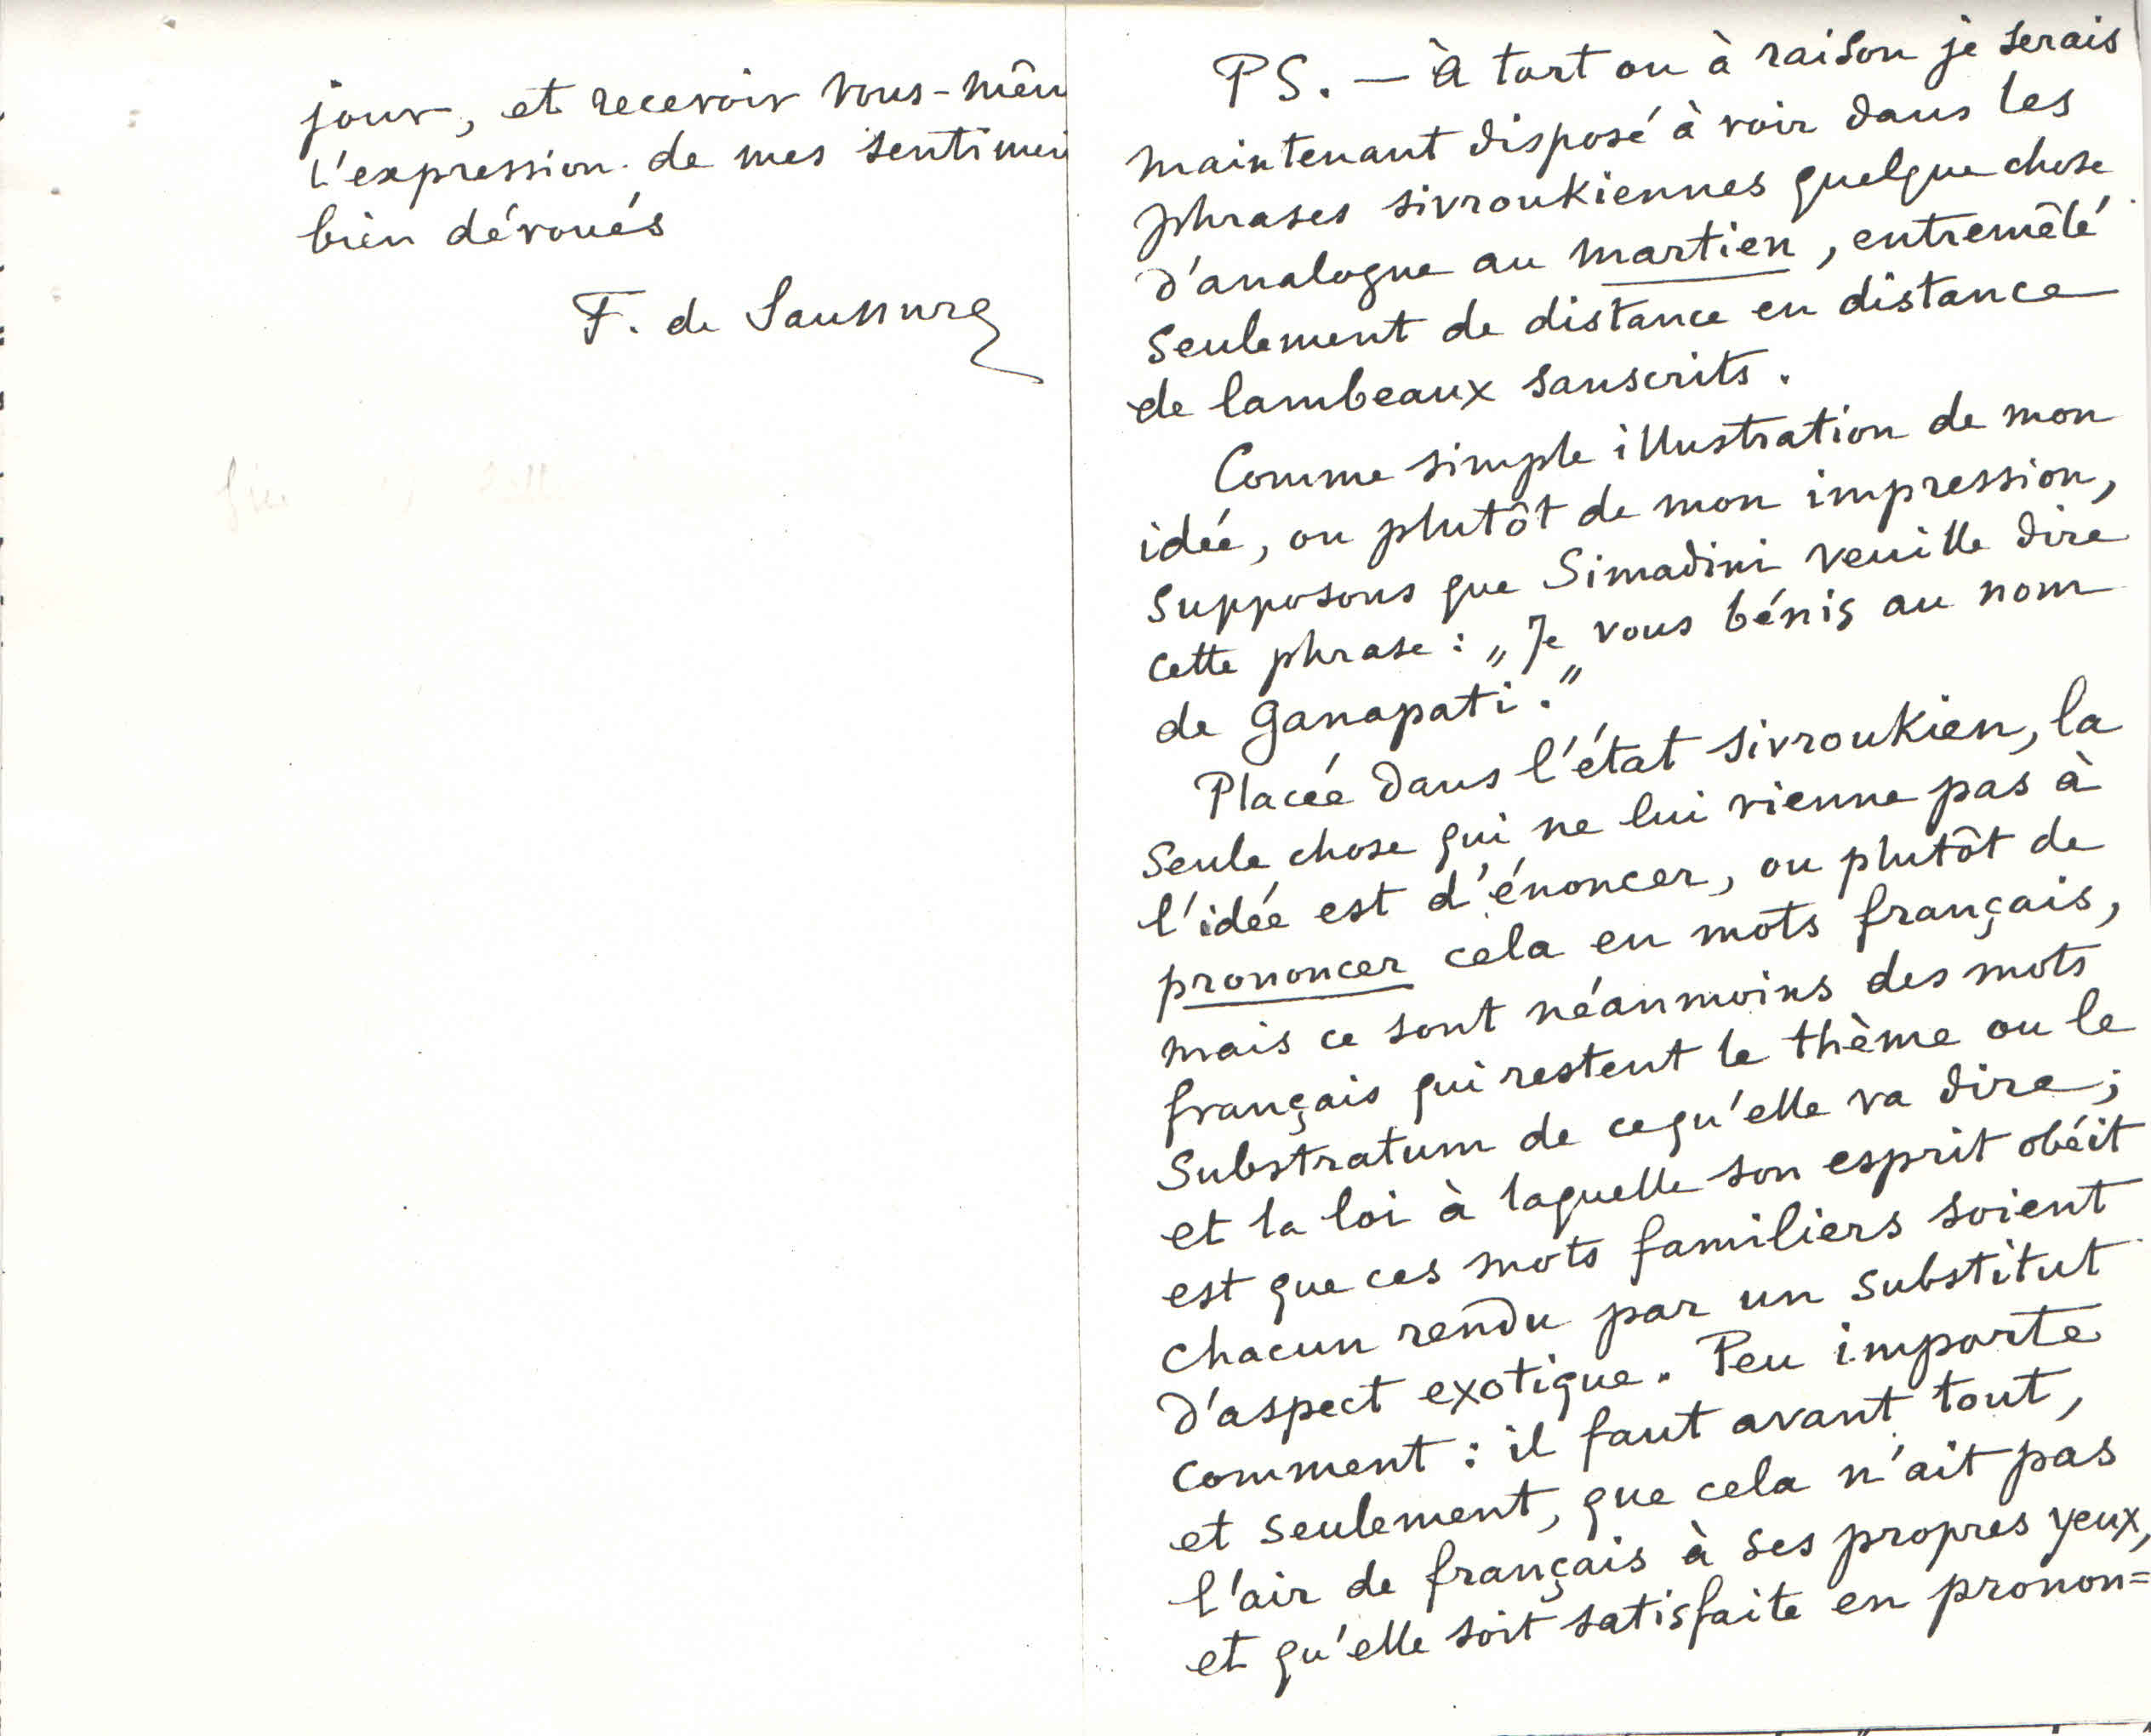 jour, et recevoir vous-mêm
l'expression de mes sentimen
bien dévoués
F. de Saussure
PS. — à tort ou à raison je serais
maintenant disposé à voir dans les
phrases sivroukiennes quelque chose
d'analogue au martien, entremêlé
seulement de distance en distance
de lambeaux sanscrits.
Comme simple illustration de mon
idée, ou plutôt de mon impression,
supposons que Simadini veuille dire
cette phrase : „Je vous bénis au nom
de Ganapati."
Placée dans l'état sivroukien, la
seule chose qui ne lui vienne pas à
l'idée est d'énoncer, ou plutôt de
prononcer cela en mots français,
mais ce sont néanmoins des mots
français qui restent le thème ou le
substratum de ce qu'elle va dire ;
et la loi à laquelle son esprit obéit
est que ces mots familiers soient
chacun rendu par un substitut
d'aspect exotique. Peu importe
comment : il faut avant tout,
et seulement, que cela n'ait pas
l'air de français à ses propres yeux,
et qu'elle soit satisfaite en pronon=